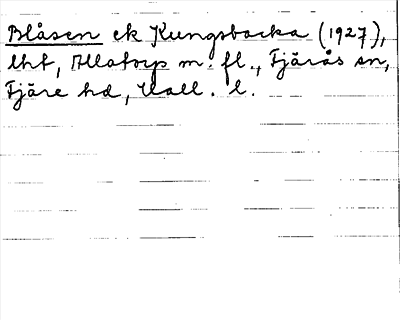 Blåsen ek Kungsbacka (1927),
lht, Allatorp m. fl., Fjärås sn,
Fjäre hd, Hall. l.